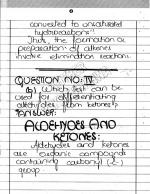 converted to unsaturated
hydrocarbons"
Thus, the formation or
preparation of alkenes
involve elimination reaction.
QUESTION NO: IV
(b) Which test can be
used for differentiating
aldehydes from ketones?
ANSWER:
ALDEHYDES AND
KETONES:
Aldehydes and ketones
are organic compound
containing carbonyl (
group.